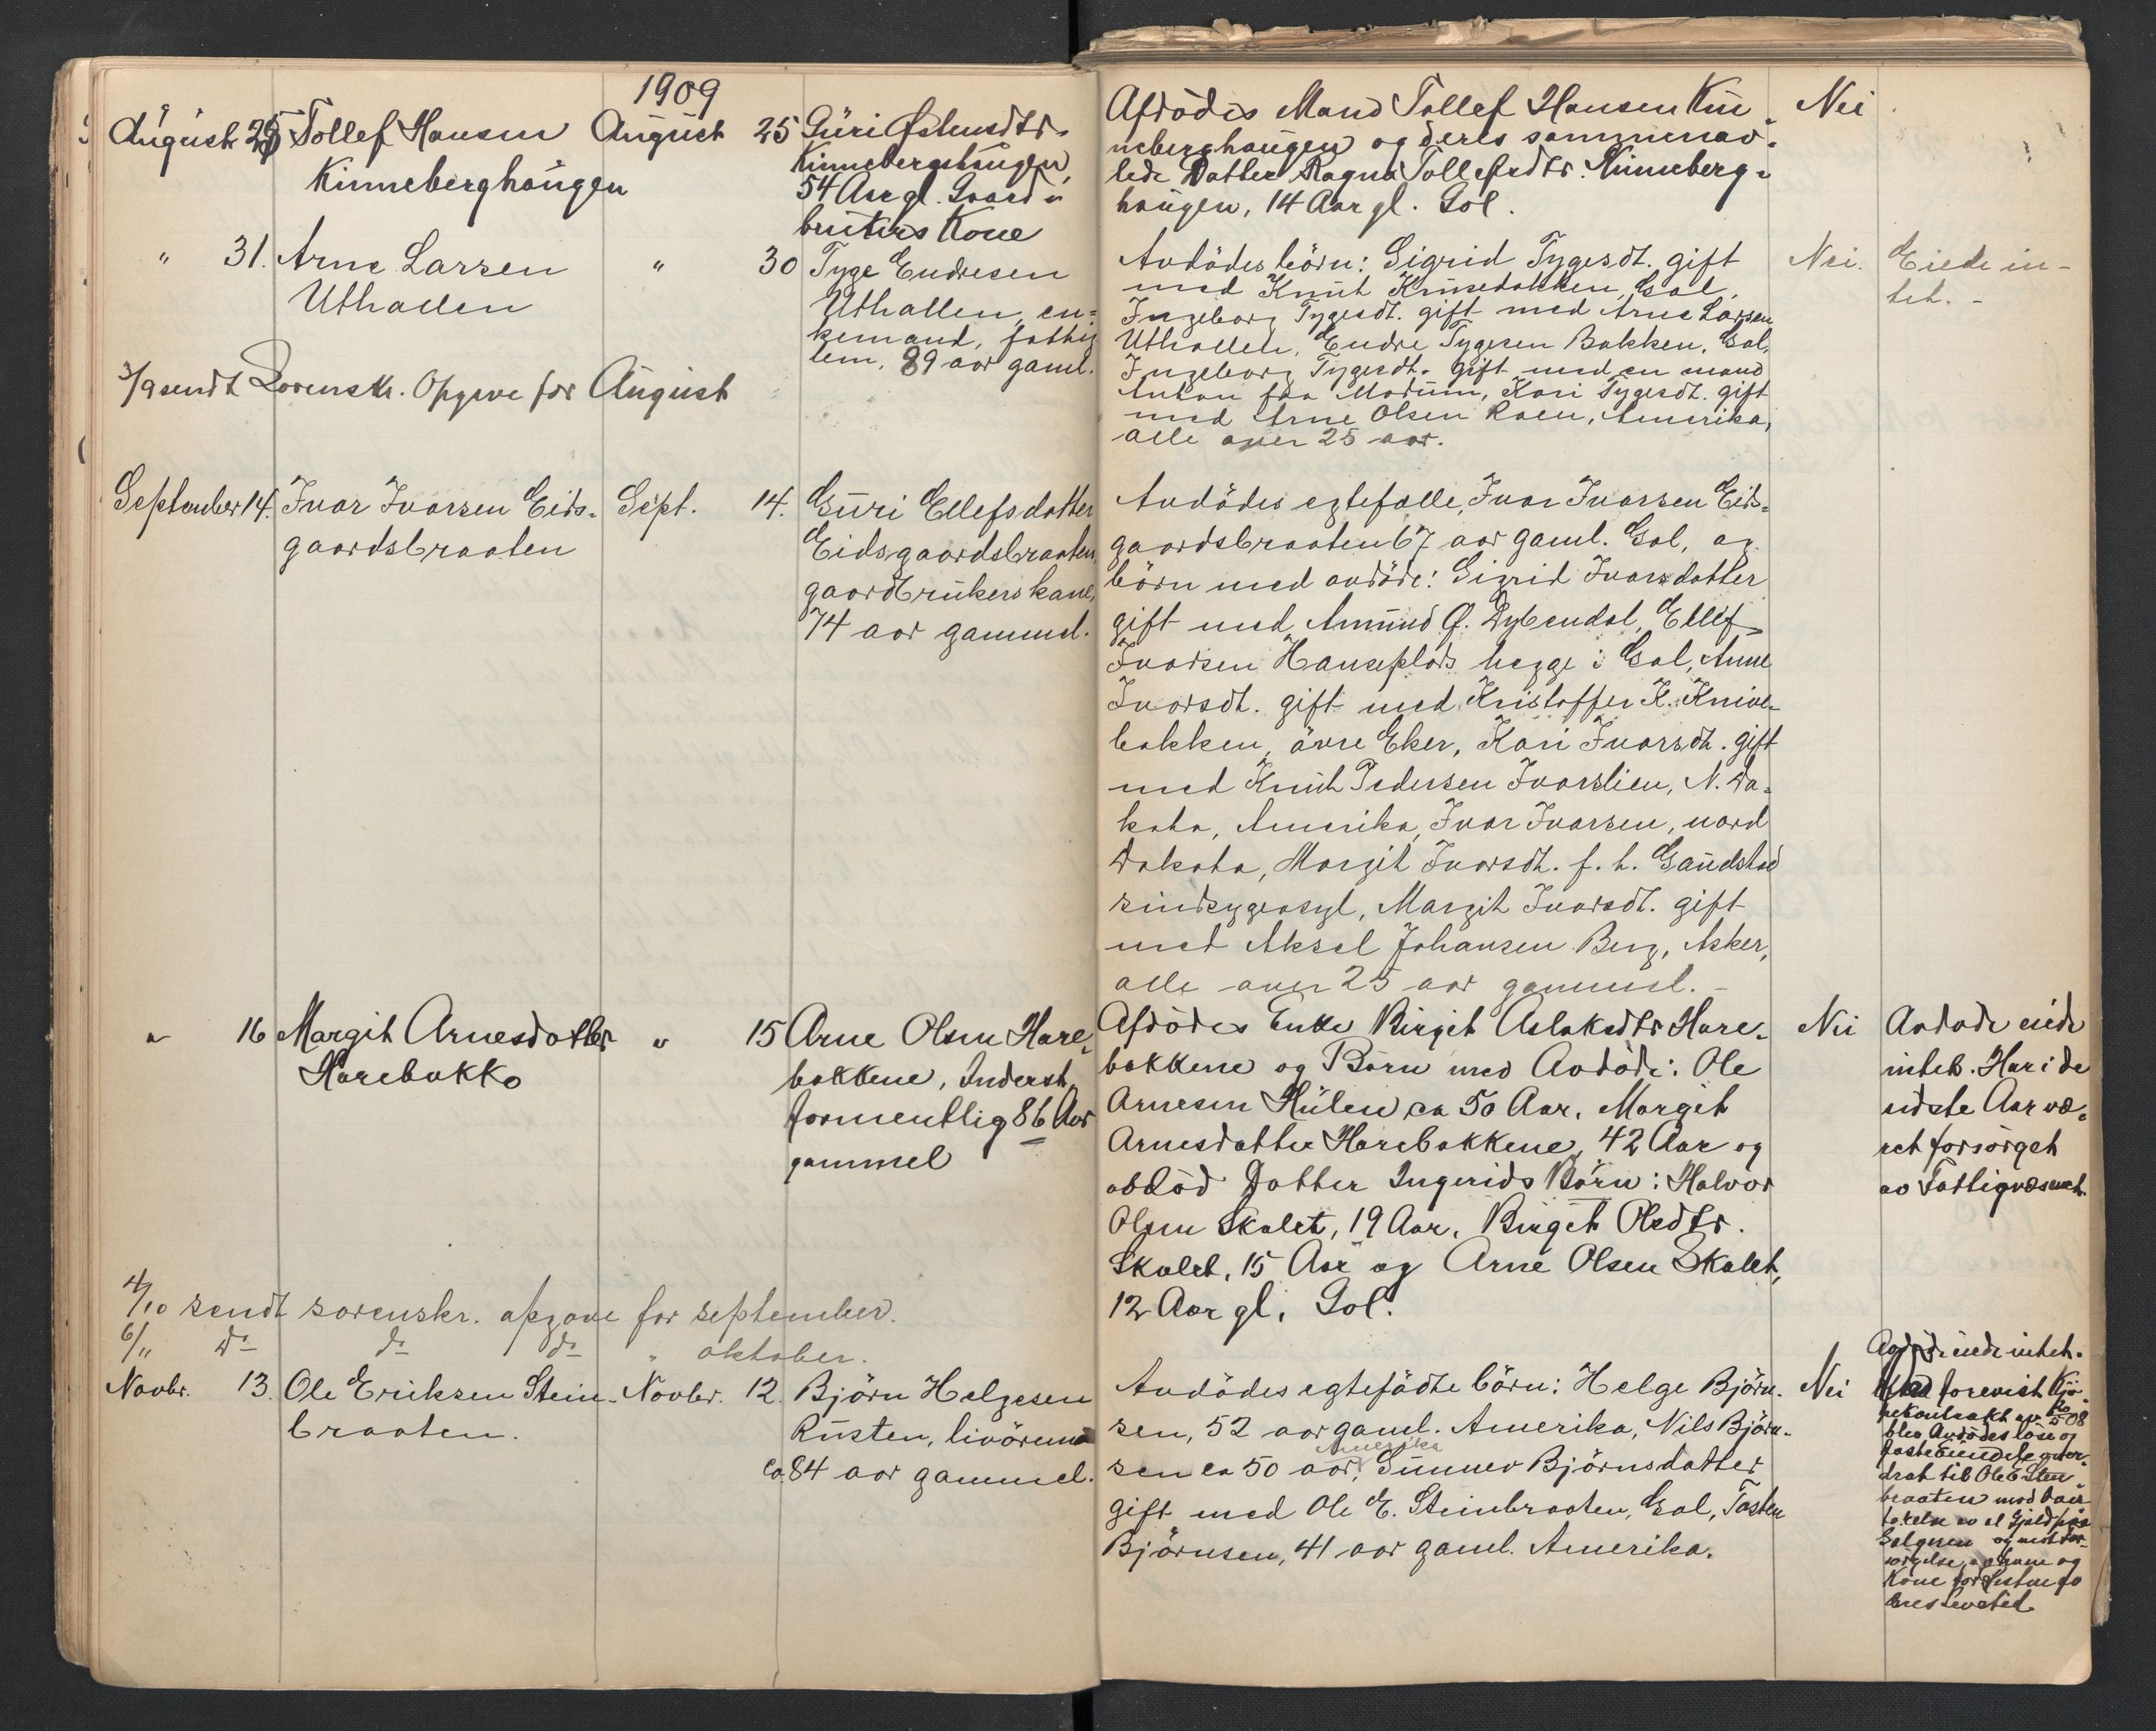 1909
August 25 Tollef Hansen August 25 Guri Østensdtr.
Kinneberghaugen
Kinneberghaugen,
54 Aar gl. Gaard-
bruters Kone
Afdødes Mand Tollef Hansen Kin-
neberghaugen og deres sammenav-
lede Datter Ragna Tollefsdtr. Kinneberg-
haugen, 14 Aar gl. Gol.
Nei
" 31. Arne Larsen " 30 Tyge Endresen
Uthallen
Uthallen, en-
kemand, fattig
lem, 89 aar gaml.
Avdødes börn: Sigrid Tygesdt. gift
med Knut Krusedokken, Gol,
Ingeborg Tygesdt. gift med Arne Larsen
Uthallen, Endre Tygesen Bakken, Gol,
Ingeborg Tygesdt. gift med en mand
Anton fra Modum, Kari Tygesdt. gift
med Arne Olsen Roen, Amerika,
alle over 25 aar.
Nei. Eiede in-
tet. -
3/9 sendt Sorenskr. Opgave for August
September 14. Ivar Ivarsen Eids- Sept. 14. Guri Ellefsdatter
gaardsbraaten
Eidsgaardsbraaten,
gaardbrukers kone,
74 aar gammel.
Avdödes egtefælle, Ivar Ivarsen Eids-
gaardsbraaten 67 aar gaml. Gol, og
börn med avdöde: Sigrid Ivarsdatter
gift med Amund Ø. Dybendal, Ellef
Ivarsen Hauseplads begge i Gol, Anne
Ivarsdt. gift med Kristoffer K. Knive-
bakken, övre Eker, Kari Ivarsdt. gift
med Knut Pedersen Ivarslien, N. Da-
kota, Amerika, Ivar Ivarsen, nord
Dakota, Margit Ivarsdt. f. t. Gaustad
sindsygeasyl, Margit Ivarsdt. gift
med Aksel Johansen Berg, Asker,
alle over 25 aar gammel. -
" 16 Margit Arnesdatter " 15 Arne Olsen Hare-
Harebakko
bakkene, Inderst,
formentlig 86 Aar
gammel
Afdödes Enke Birgit Aslaksdtr Hare-
bakkene og Börn med Avdöde: Ole
Arnesen Hulen ca 50 Aar, Margit
Arnesdatter Harebakkene, 42 Aar og
avdöd Datter Ingerids Börn: Halvor
Olsen Skalet, 19 Aar, Birgit Olsdtr.
Skalet, 15 Aar og Arne Olsen Skalet,
12 Aar gl. Gol.
Nei Avdöde eiede
intet. Har i de
sidste Aar væ-
ret forsörget
av Fattigvæsenet.
4/10 sendt sorenskr. opgave for september.
6/11 do do do " oktober.
Novbr. 13. Ole Eriksen Stein- Novbr. 12. Björn Helgesen
braaten.
Rusten, livöremd
ca 84 aar gammel.
Avdödes egtefödte börn: Helge Björn-
sen, 52 aar gaml. Amerika, Nils Björn-
sen ca 50 aar, Amerika Gunner Björnsdatter
gift med Ole E. Steinbraaten, Gol, Tosten
Björnsen, 41 aar gaml. Amerika.
Nei
Avdöde eiede intet.
forevist Kjö-
pekontrakt av 08
blev Avdödes löse og
faste Eiendele over-
drat til Ole E Sten-
braaten mod Over-
takelse av al Gjeld paa
og mot For-
sörgelse av ham og
Kone for
deres Levetid